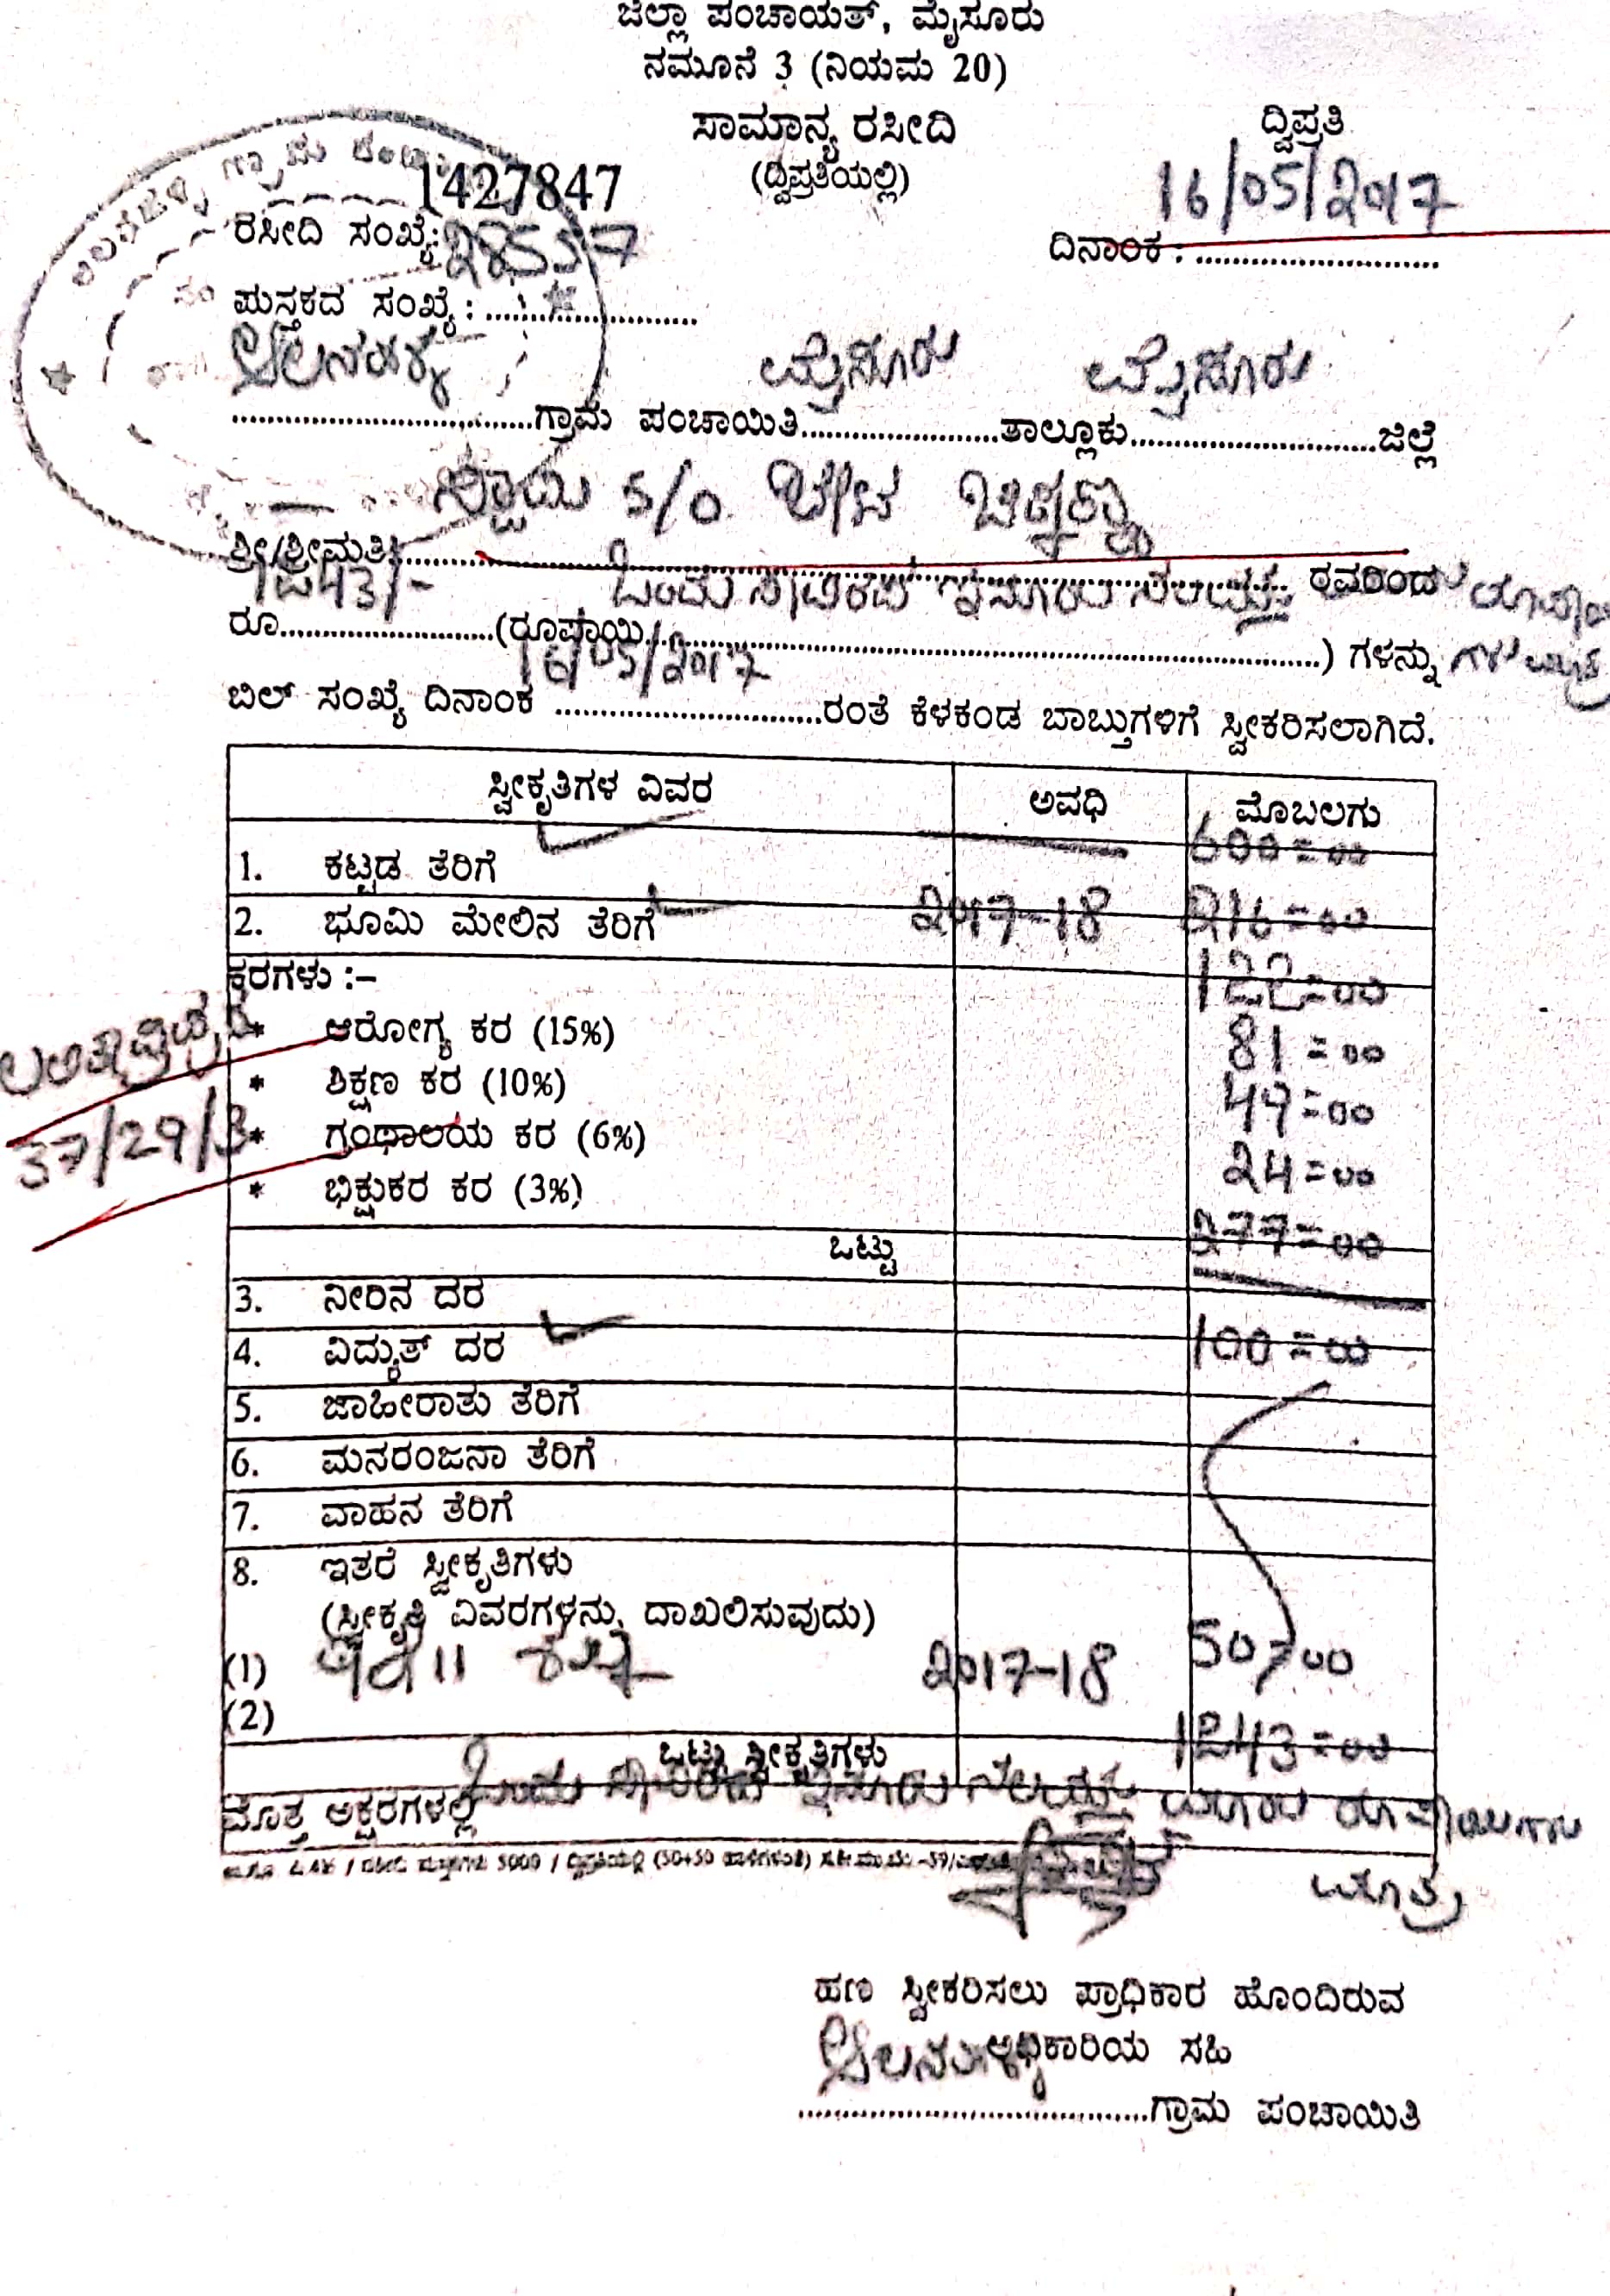 ಜಿಲ್ಲಾ ಪಂಚಾಯತ್, ಮೈಸೂರು
ನಮೂನೆ 3 (ನಿಯಮ 20)
ಸಾಮಾನ್ಯ ರಸೀದಿ
(ದ್ವಿಪ್ರತಿಯಲ್ಲಿ)
ದ್ವಿಪ್ರತಿ
1427847
ರಸೀದಿ ಸಂಖ್ಯೆ:
ದಿನಾಂಕ : 16/05/2017
ಪುಸ್ತಕದ ಸಂಖ್ಯೆ :
ಗ್ರಾಮ ಪಂಚಾಯಿತಿ ಮೈಸೂರು ತಾಲ್ಲೂಕು ಮೈಸೂರು ಜಿಲ್ಲೆ
ಶ್ರೀ/ಶ್ರೀಮತಿ S/O ರವರಿಂದ
ರೂ 1243/- (ರೂಪಾಯಿ ಒಂದು ಸಾವಿರದ ಇನೂರು ನಲವತ್ತು ) ಗಳನ್ನು
ಬಿಲ್ ಸಂಖ್ಯೆ ದಿನಾಂಕ 16/05/2017 ರಂತೆ ಕೆಳಕಂಡ ಬಾಬ್ತುಗಳಿಗೆ ಸ್ವೀಕರಿಸಲಾಗಿದೆ.
ಸ್ವೀಕೃತಿಗಳ ವಿವರ ಅವಧಿ ಮೊಬಲಗು
1. ಕಟ್ಟಡ ತೆರಿಗೆ 600=00
2. ಭೂಮಿ ಮೇಲಿನ ತೆರಿಗೆ 2017-18 216=00
ಕರಗಳು :-
* ಆರೋಗ್ಯ ಕರ (15%) 122=00
* ಶಿಕ್ಷಣ ಕರ (10%) 81=00
37/29/3
* ಗ್ರಂಥಾಲಯ ಕರ (6%) 49=00
* ಭಿಕ್ಷುಕರ ಕರ (3%) 24=00
ಒಟ್ಟು 277=00
3. ನೀರಿನ ದರ
4. ವಿದ್ಯುತ್ ದರ 100=00
5. ಜಾಹೀರಾತು ತೆರಿಗೆ
6. ಮನರಂಜನಾ ತೆರಿಗೆ
7. ವಾಹನ ತೆರಿಗೆ
8. ಇತರೆ ಸ್ವೀಕೃತಿಗಳು
(ಸ್ವೀಕೃತಿ ವಿವರಗಳನ್ನು ದಾಖಲಿಸುವುದು)
(1) 2017-18 50=00
(2)
ಒಟ್ಟು ಸ್ವೀಕೃತಿಗಳು 1243=00
ಮೊತ್ತ ಅಕ್ಷರಗಳಲ್ಲಿ ಒಂದು ಸಾವಿರದ ಇನೂರು ನಲವತ್ತು ಮೂರು ರೂಪಾಯಿಗಳು
ಮಾತ್ರ
ಹಣ ಸ್ವೀಕರಿಸಲು ಪ್ರಾಧಿಕಾರ ಹೊಂದಿರುವ
ಅಧಿಕಾರಿಯ ಸಹಿ
ಗ್ರಾಮ ಪಂಚಾಯಿತಿ